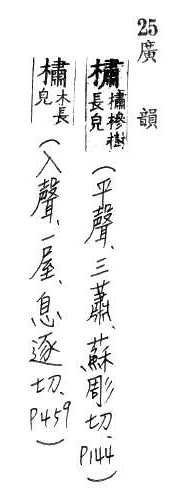 25廣韻
橚 橚槮樹長皃(平聲、三蕭、蘇彫切、P144)
橚 木長皃(入聲、一屋、息逐切、P459)